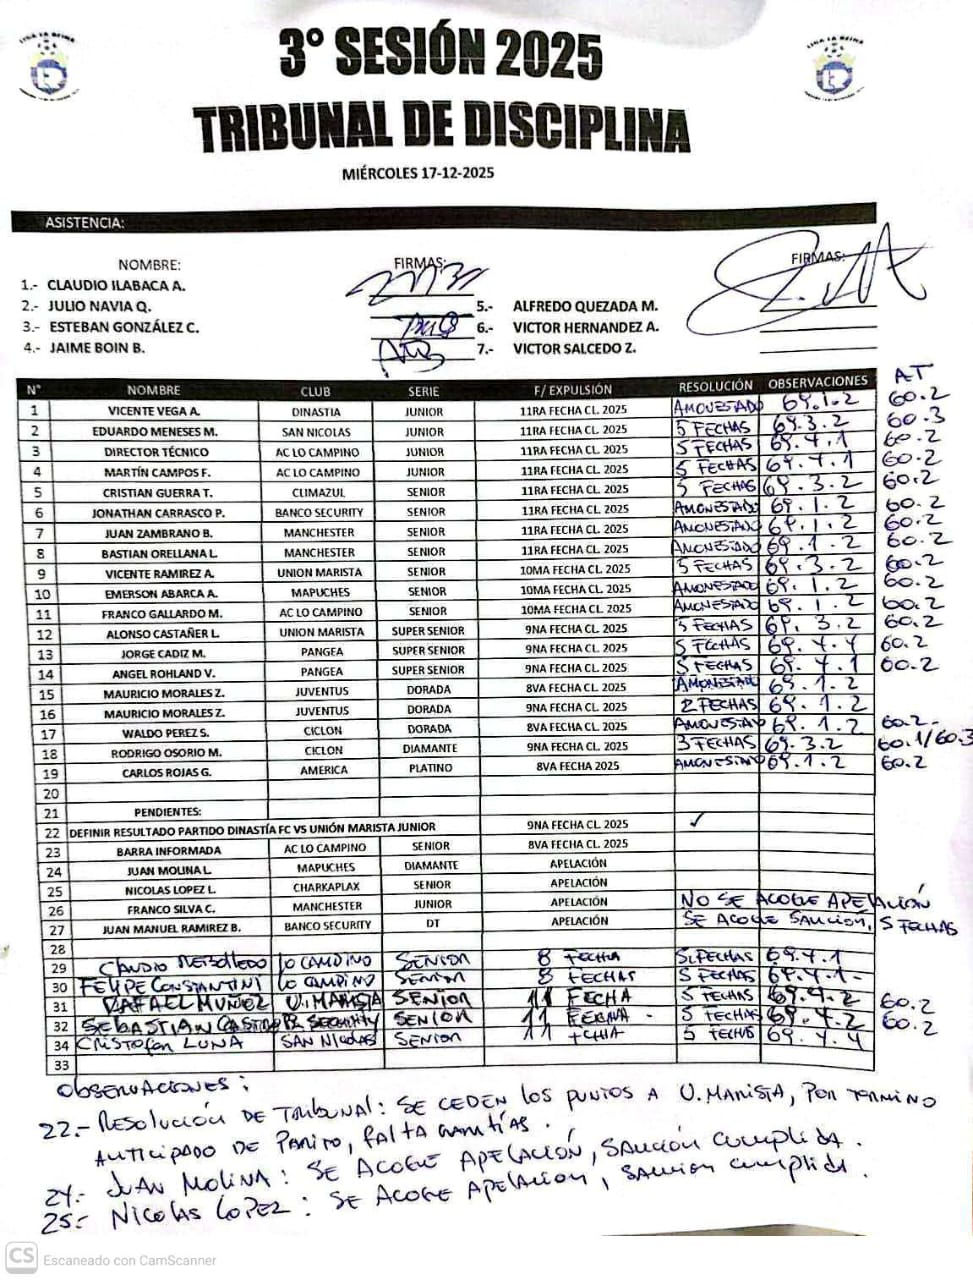 LIGA LA REINA
LIGA LA REINA
3° SESIÓN 2025
TRIBUNAL DE DISCIPLINA
MIÉRCOLES 17-12-2025
ASISTENCIA:
NOMBRE: FIRMAS: FIRMAS:
1.- CLAUDIO ILABACA A.
2.- JULIO NAVIA Q. 5.- ALFREDO QUEZADA M.
3.- ESTEBAN GONZÁLEZ C. 6.- VICTOR HERNANDEZ A.
4.- JAIME BOIN B. 7.- VICTOR SALCEDO Z.
N° NOMBRE CLUB SERIE F/ EXPULSIÓN RESOLUCIÓN OBSERVACIONES AT
1 VICENTE VEGA A. DINASTIA JUNIOR 11RA FECHA CL. 2025 AMONESTADO 69.1.2 60.2
2 EDUARDO MENESES M. SAN NICOLAS JUNIOR 11RA FECHA CL. 2025 5 FECHAS 69.3.2 60.3
3 DIRECTOR TÉCNICO AC LO CAMPINO JUNIOR 11RA FECHA CL. 2025 5 FECHAS 69.4.1 60.2
4 MARTÍN CAMPOS F. AC LO CAMPINO JUNIOR 11RA FECHA CL. 2025 5 FECHAS 69.4.1 60.2
5 CRISTIAN GUERRA T. CLIMAZUL SENIOR 11RA FECHA CL. 2025 5 FECHAS 69.3.2 60.2
6 JONATHAN CARRASCO P. BANCO SECURITY SENIOR 11RA FECHA CL. 2025 AMONESTADO 69.1.2 60.2
7 JUAN ZAMBRANO B. MANCHESTER SENIOR 11RA FECHA CL. 2025 AMONESTADO 69.1.2 60.2
8 BASTIAN ORELLANA L. MANCHESTER SENIOR 11RA FECHA CL. 2025 AMONESTADO 69.1.2 60.2
9 VICENTE RAMIREZ A. UNION MARISTA SENIOR 10MA FECHA CL. 2025 5 FECHAS 69.3.2 60.2
10 EMERSON ABARCA A. MAPUCHES SENIOR 10MA FECHA CL. 2025 AMONESTADO 69.1.2 60.2
11 FRANCO GALLARDO M. AC LO CAMPINO SENIOR 10MA FECHA CL. 2025 AMONESTADO 69.1.2 60.2
12 ALONSO CASTAÑER L. UNION MARISTA SUPER SENIOR 9NA FECHA CL. 2025 5 FECHAS 69.3.2 60.2
13 JORGE CADIZ M. PANGEA SUPER SENIOR 9NA FECHA CL. 2025 5 FECHAS 69.4.4 60.2
14 ANGEL ROHLAND V. PANGEA SUPER SENIOR 9NA FECHA CL. 2025 5 FECHAS 69.4.1 60.2
15 MAURICIO MORALES Z. JUVENTUS DORADA 8VA FECHA CL. 2025 AMONESTADO 69.1.2
16 MAURICIO MORALES Z. JUVENTUS DORADA 9NA FECHA CL. 2025 2 FECHAS 69.1.2
17 WALDO PEREZ S. CICLON DORADA 8VA FECHA CL. 2025 AMONESTADO 69.1.2 60.2-
18 RODRIGO OSORIO M. CICLON DIAMANTE 9NA FECHA CL. 2025 3 FECHAS 69.3.2 60.1/60.3
19 CARLOS ROJAS G. AMERICA PLATINO 8VA FECHA 2025 AMONESTADO 69.1.2 60.2
20
21 PENDIENTES:
22 DEFINIR RESULTADO PARTIDO DINASTÍA FC VS UNIÓN MARISTA JUNIOR 9NA FECHA CL. 2025 ✓
23 BARRA INFORMADA AC LO CAMPINO SENIOR 8VA FECHA CL. 2025
24 JUAN MOLINA L. MAPUCHES DIAMANTE APELACIÓN
25 NICOLAS LOPEZ L. CHARKAPLAX SENIOR APELACIÓN
26 FRANCO SILVA C. MANCHESTER JUNIOR APELACIÓN NO SE ACOGE APELACIÓN
27 JUAN MANUEL RAMIREZ B. BANCO SECURITY DT APELACIÓN SE ACOGE SANCIÓN, 5 FECHAS
28
29 CLAUDIO REBOLLEDO LO CAMPINO SENIOR 8 FECHA 5 FECHAS 69.4.1
30 FELIPE CONSTANTINI LO CAMPINO SENIOR 8 FECHAS 5 FECHAS 69.4.1-
31 RAFAEL MUÑOZ U. MARISTA SENIOR 11 FECHA 5 FECHAS 69.4.2 60.2
32 SEBASTIAN CASTRO B. SECURITY SENIOR 11 FECHA - 5 FECHAS 69.4.2 60.2
34 CRISTOFER LUNA SAN NICOLAS SENIOR 11 FECHA 5 FECHAS 69.4.4
33
OBSERVACIONES:
22.- RESOLUCIÓN DE TRIBUNAL: SE CEDEN LOS PUNTOS A U. MARISTA, POR TERMINO
ANTICIPADO DE PARTIDO, FALTA GARANTÍAS.
24.- JUAN MOLINA: SE ACOGE APELACIÓN, SANCIÓN CUMPLIDA.
25.- NICOLAS LOPEZ: SE ACOGE APELACIÓN, SANCION CUMPLIDA.
CS Escaneado con CamScanner